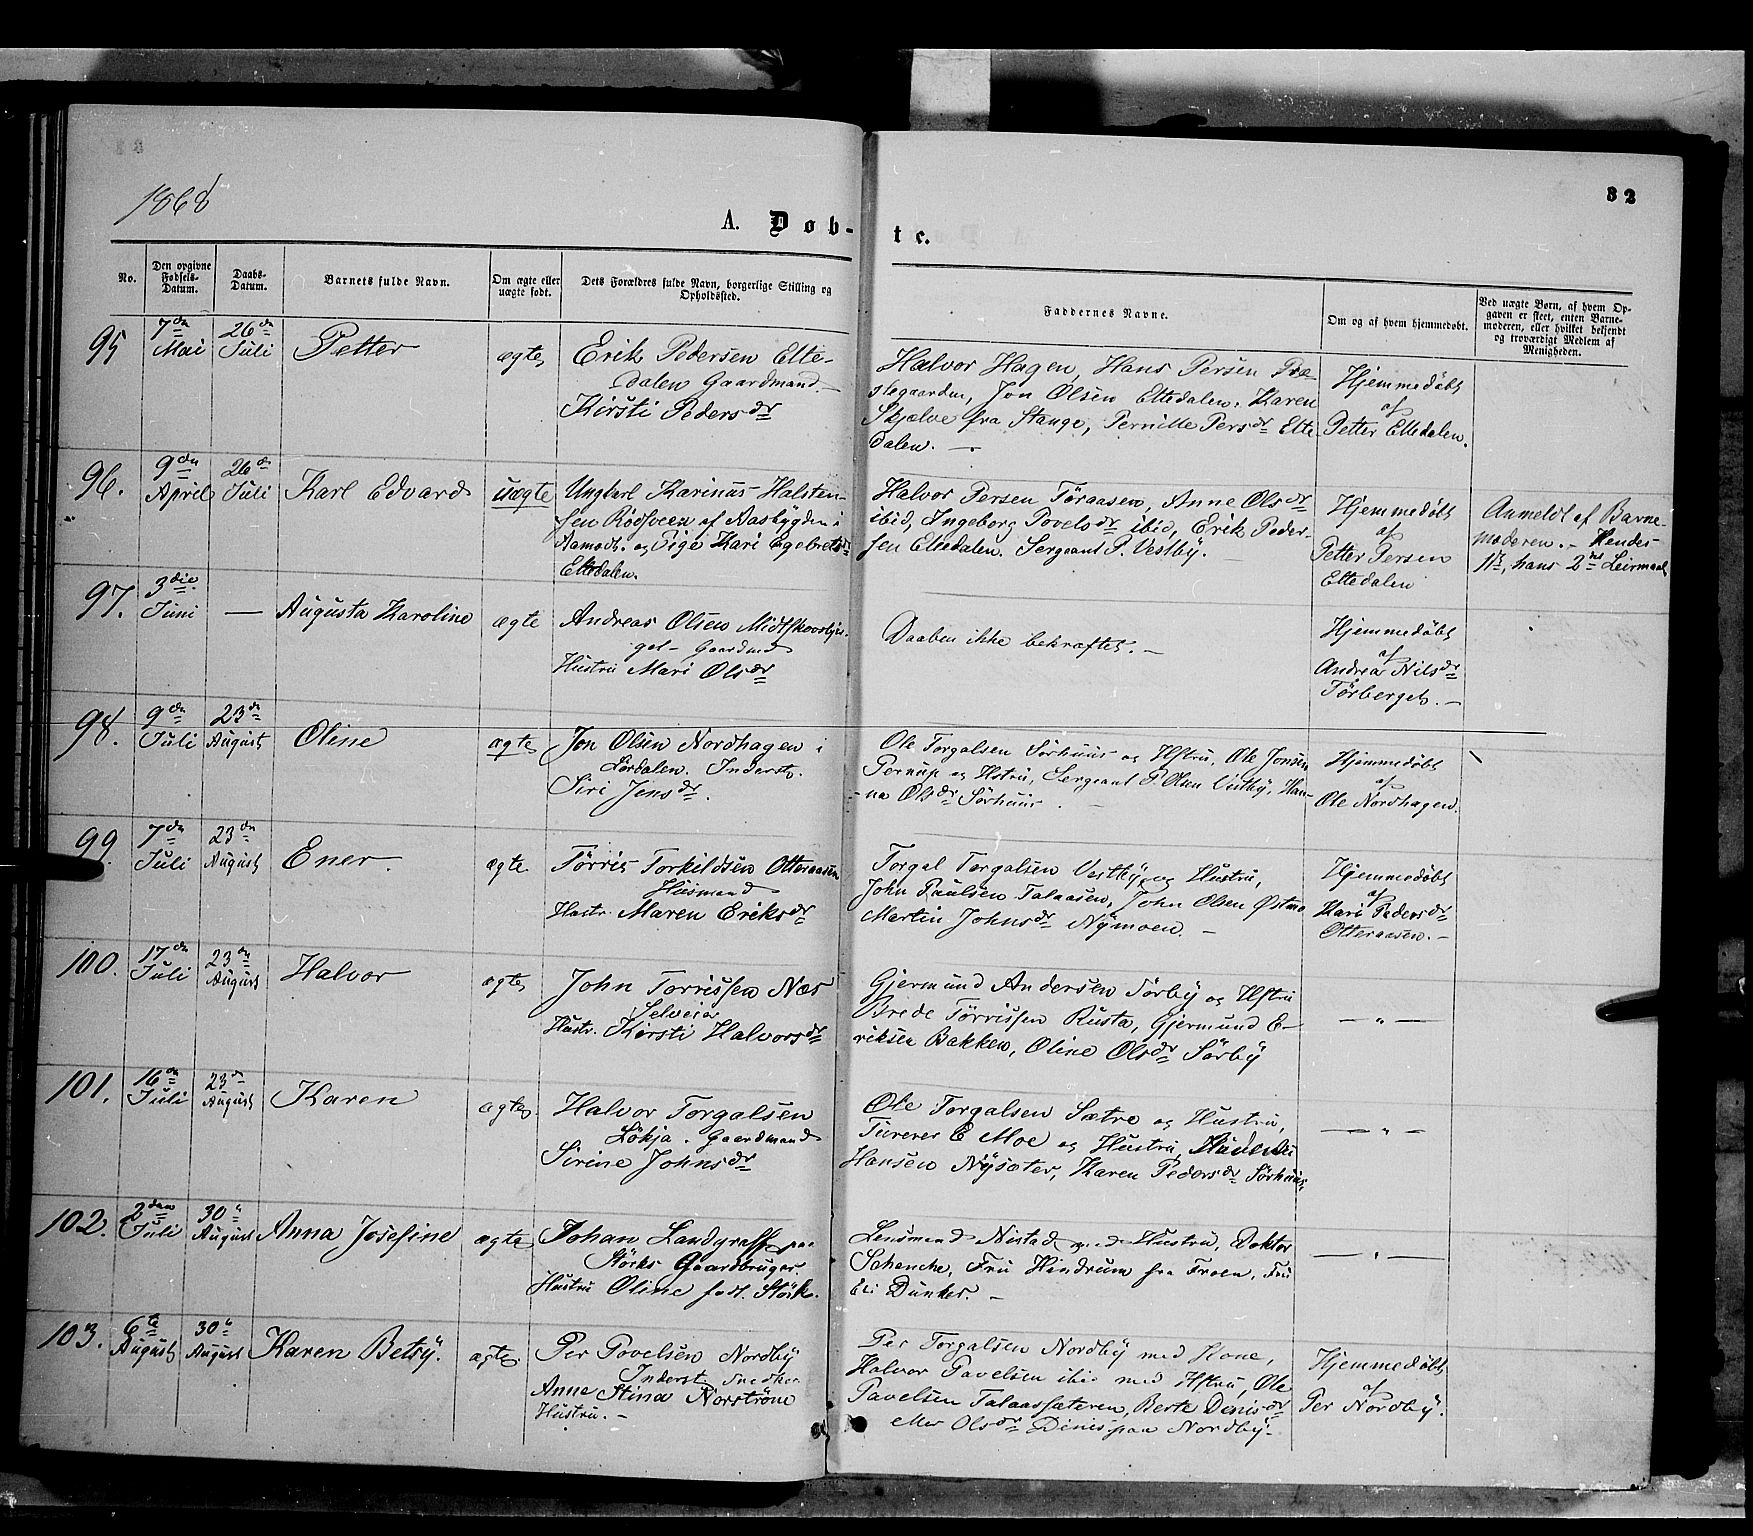 1868
32
A. Døb-
te.
No.
Den opgivne Fødsels-Datum.
Daabs-Datum.
Barnets fulde Navn.
Om ægte eller uægte født.
Dets Forældres fulde Navn, borgerlige Stilling og Opholdssted.
Faddernes Navne.
Om og af hvem hjemmedøbt.
Ved uægte Børn, af hvem Opgaven er skeet, enten Barnemoderen, eller hvilket bekjendt og troværdigt Medlem af Menigheden.
95
7de Mai
26de Juli
Petter
ægte
Erik Pedersen Elte-
dalen Gaardmand.
Kirsti Pedersdr
Halvor Hagen, Hans Persen Præ-
stegaarden, Jon Olsen Eltedalen, Karen
Skjælve fra Stange, Pernille Persdr Elte
dalen. —
Hjemmedøbt
af
Petter Eltedalen.
96.
9de April
26de Juli
Karl Edvard
uægte
Ungkarl Karinus Halsten-
sen Rödsveen af Nasbygden i
Aamodt. og Pige Kari Egebretsdr
Eltedalen.
Halvor Persen Töraasen, Anne Olsdr
ibid, Ingeborg Povelsdr ibid, Erik Peder-
sen Eltedalen. Sergeant P. Vestby.
Hjemmedøbt
af
Petter Persen
Eltedalen
Anmeldt af Barne-
moderen. — Hendes
1ste, hans 2det Leirmaal
97.
3die Juni
—
Augusta Karoline
ægte
Andreas Olsen Midtskovslyn-
gel - Gaardmd
Hustru Mari Olsdr
Daaben ikke bekræftet. —
Hjemmedøbt
af
Andrea Nilsdr
Törberget. —
98.
9de Juli
23de August
Oline
ægte
Jon Olsen Nordhagen i
Lördalen. Inderst.
Siri Jensdr.
Ole Torgalsen Sörhuus og Hstru, Ole Jonsen
Pernup og Hstru, Sergeant P. Olsen Vestby, Han-
na Olsdr Sörhuus. —
Hjemmedøbt
af
Ole Nordhagen
99
7de Juli
23de August
Ener
ægte
Törris Torkildsen Otteraasen
Husmand
Hustr. Maren Eriksdr
Torgal Torgalsen Vestby og Hustru,
John Paulsen Talaasen, John Olsen Østmo
Martin Johnsdr Nymoen. —
Hjemmedøbt
af
Kari Pedersdr
Otteraasen. —
100.
17de Juli
23de August
Halvor
ægte
John Torrissen Næs
Selveier
Hustr. Kirsti Halvorsdr
Gjermund Andersen Sörby og Hstru
Brede Törrissen Rusta, Gjermund E-
riksen Bakken, Oline Olsdr Sörby
— " —
101.
16de Juli
23de August
Karen
ægte
Halvor Torgalsen
Lökja. Gaardmand
Sirine Johnsdr
Ole Torgalsen Sætre og Hustru,
Turerer E Moe og Hustru,
Hansen Nysæter, Karen Pedersdr Sörhuus
— " —
102.
2den Juli
30te August
Anna Josefine
ægte
Johan Landgraff paa
Störks Gaardbruger
Hustru Oline født Störk.
Lensmand Nistad med Hustru, Doktor
Schenche, Fru Hindrum fra Troen, Fru
Eli Dunker. —
— " —
103.
6te August
30te August
Karen Betsy.
ægte
Per Povelsen Nordby
Inderst Snedker
Anne Stina Norström
Hustru. —
Per Torgalsen Nordby med Kone,
Halvor Pavelsen ibid med Hstru, Ole
Pavelsen Talaassæteren, Berte Dinisdr
Olsdr Dinis paa Nordby.
Hjemmedøbt
af
Per Nordby.